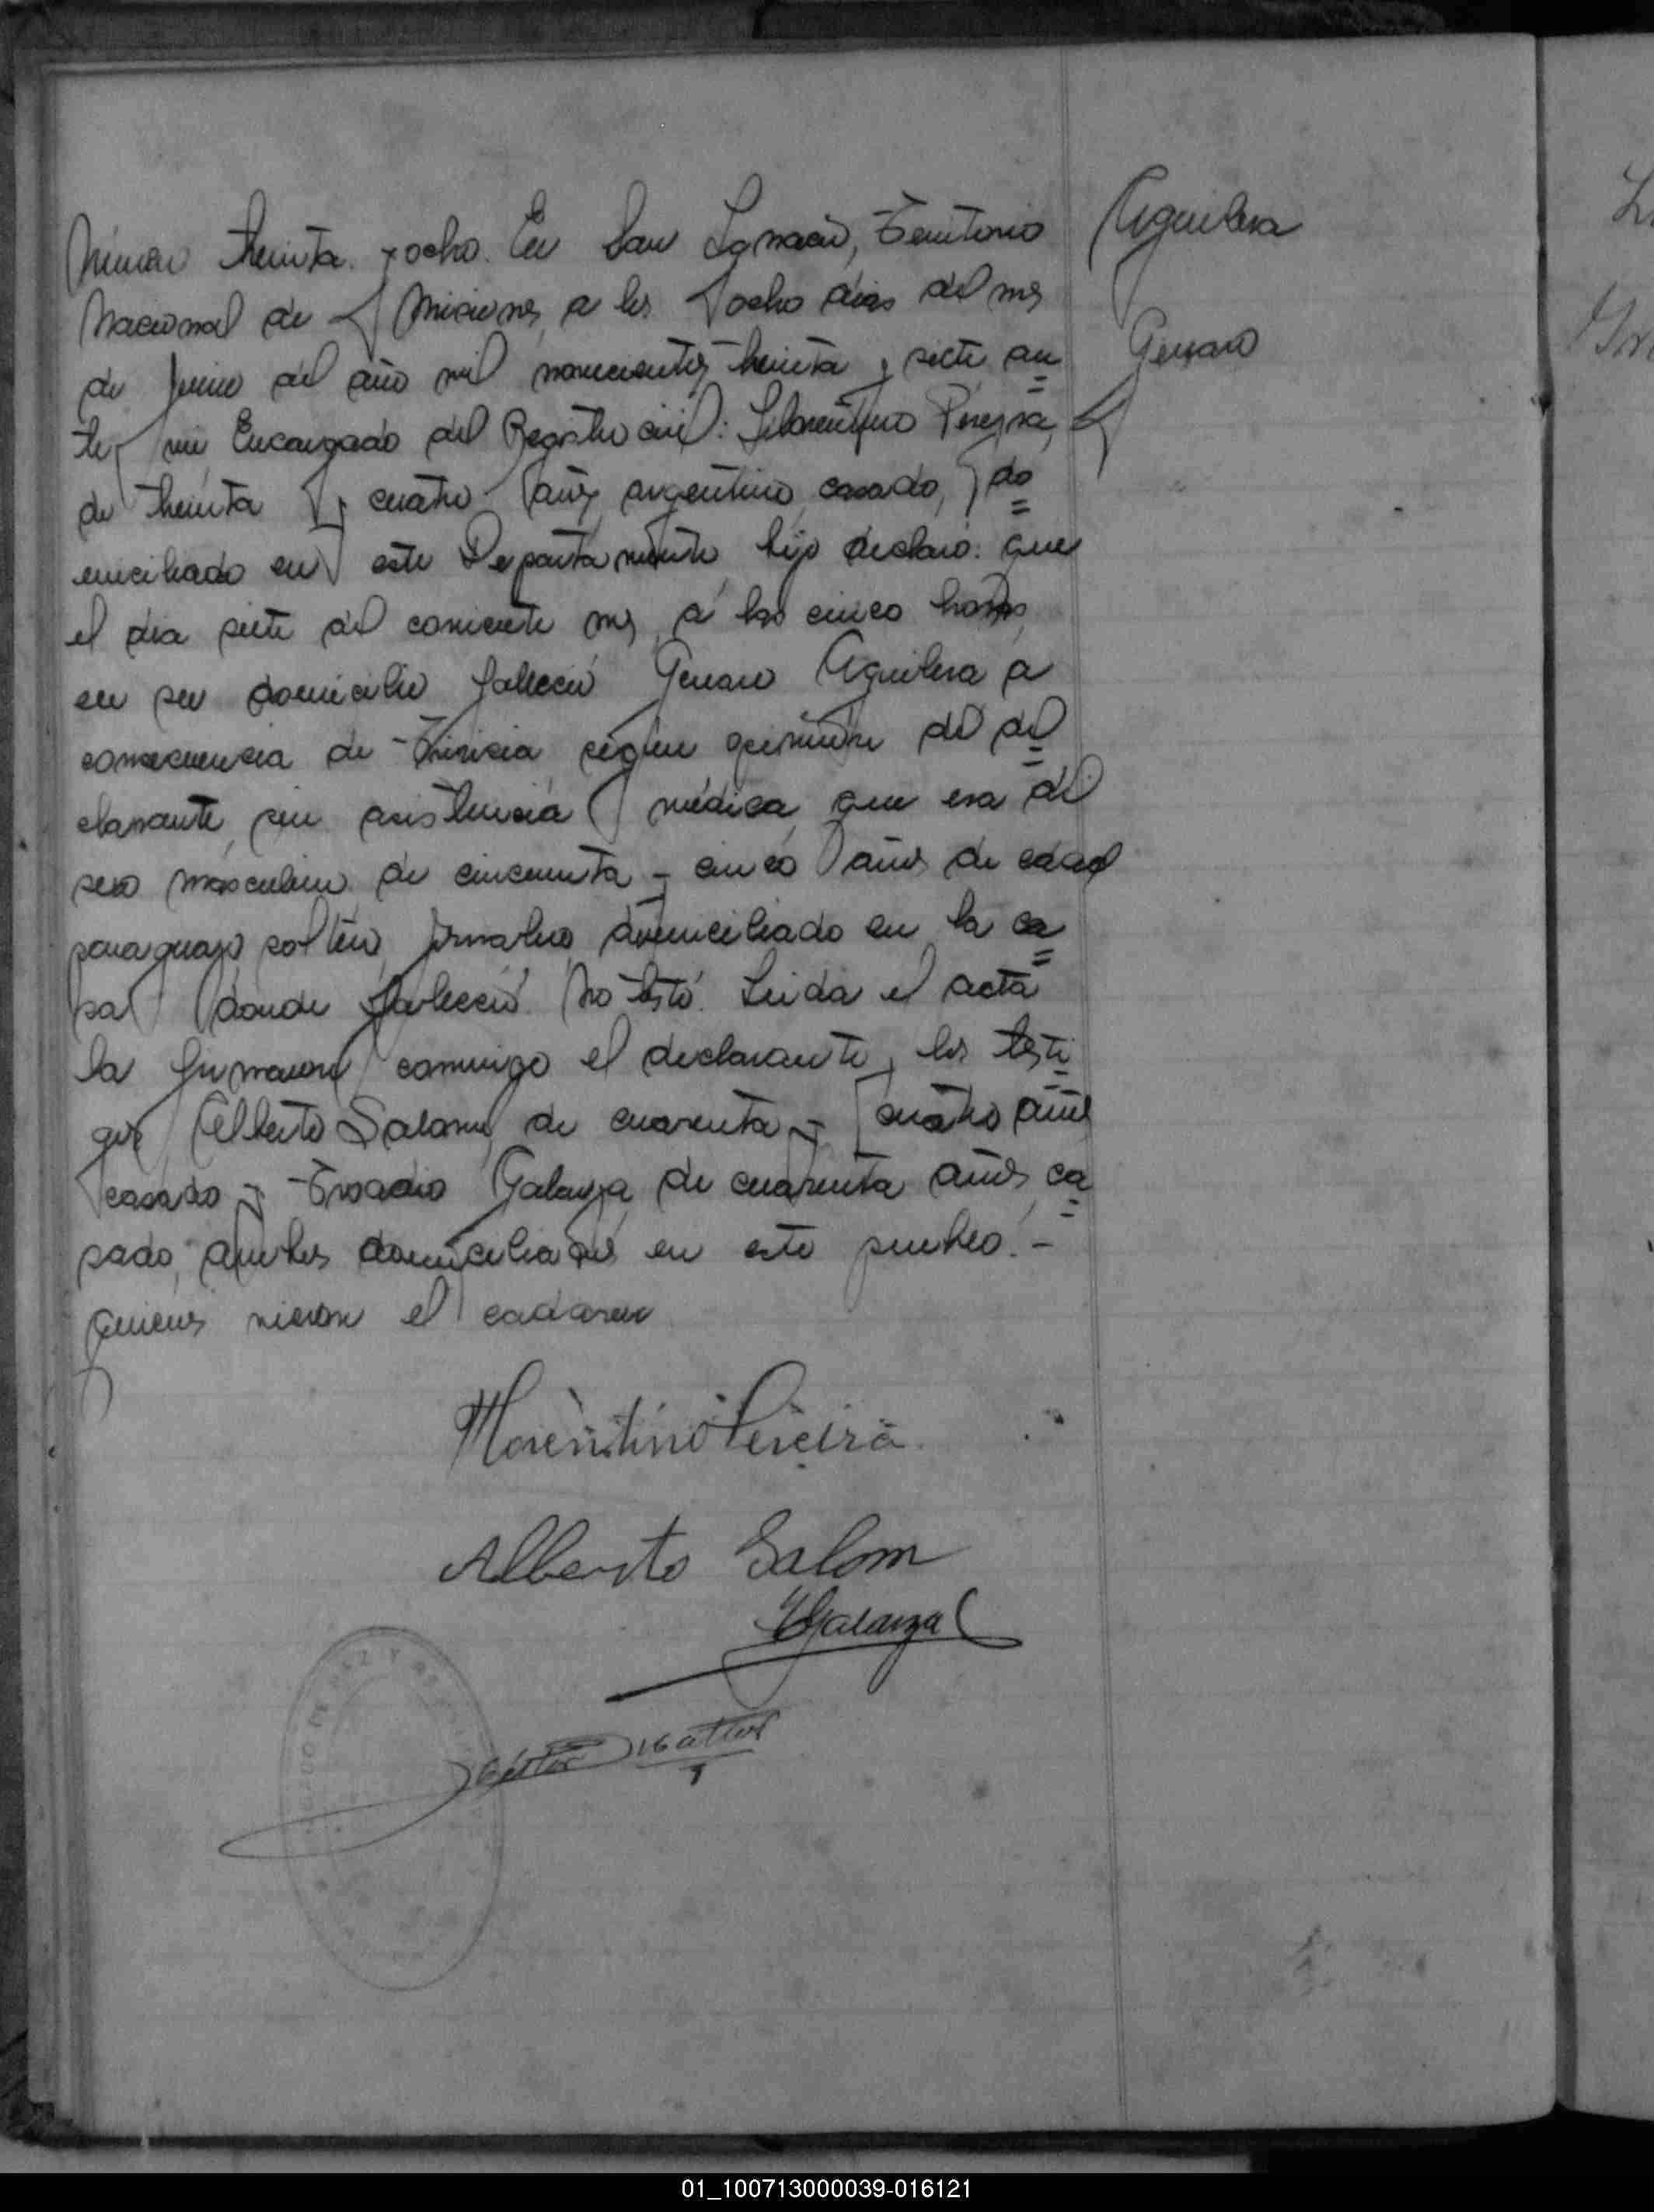 Número treinta y ocho. En San Ignacio, Territorio
Nacional de Misiones, a los ocho dias del mes
de Junio del año mil novecientos treinta y siete an=
te mi Encargado del Registro civil: Florentino Pereyra,
de treinta y cuatro años, argentino, casado, do=
miciliado en este Departamento hijo declaró: que
el dia siete del corriente mes, á las cinco horas,
en su domicilio falleció Genaro Aguilera á
consecuencia de Tisicia según opinión del de=
clarante, sin asistencia médica, que era del
sexo masculino, de cincuenta y cinco años de edad
paraguayo, soltero, jornalero, domiciliado en la ca=
sa donde falleció. No testó. Leida el acta
la firmaron conmigo el declarante y los testi=
gos Alberto Salom, de cuarenta y cuatro años
casado y Troadio Galarza, de cuarenta años, ca=
sado, ambos domiciliados en este pueblo.-
quienes vieron el cadaver
Aguilera
Genaro
Florentino Pereira
Alberto Salom
TGalarza
Néstor
01_100713000039-016121